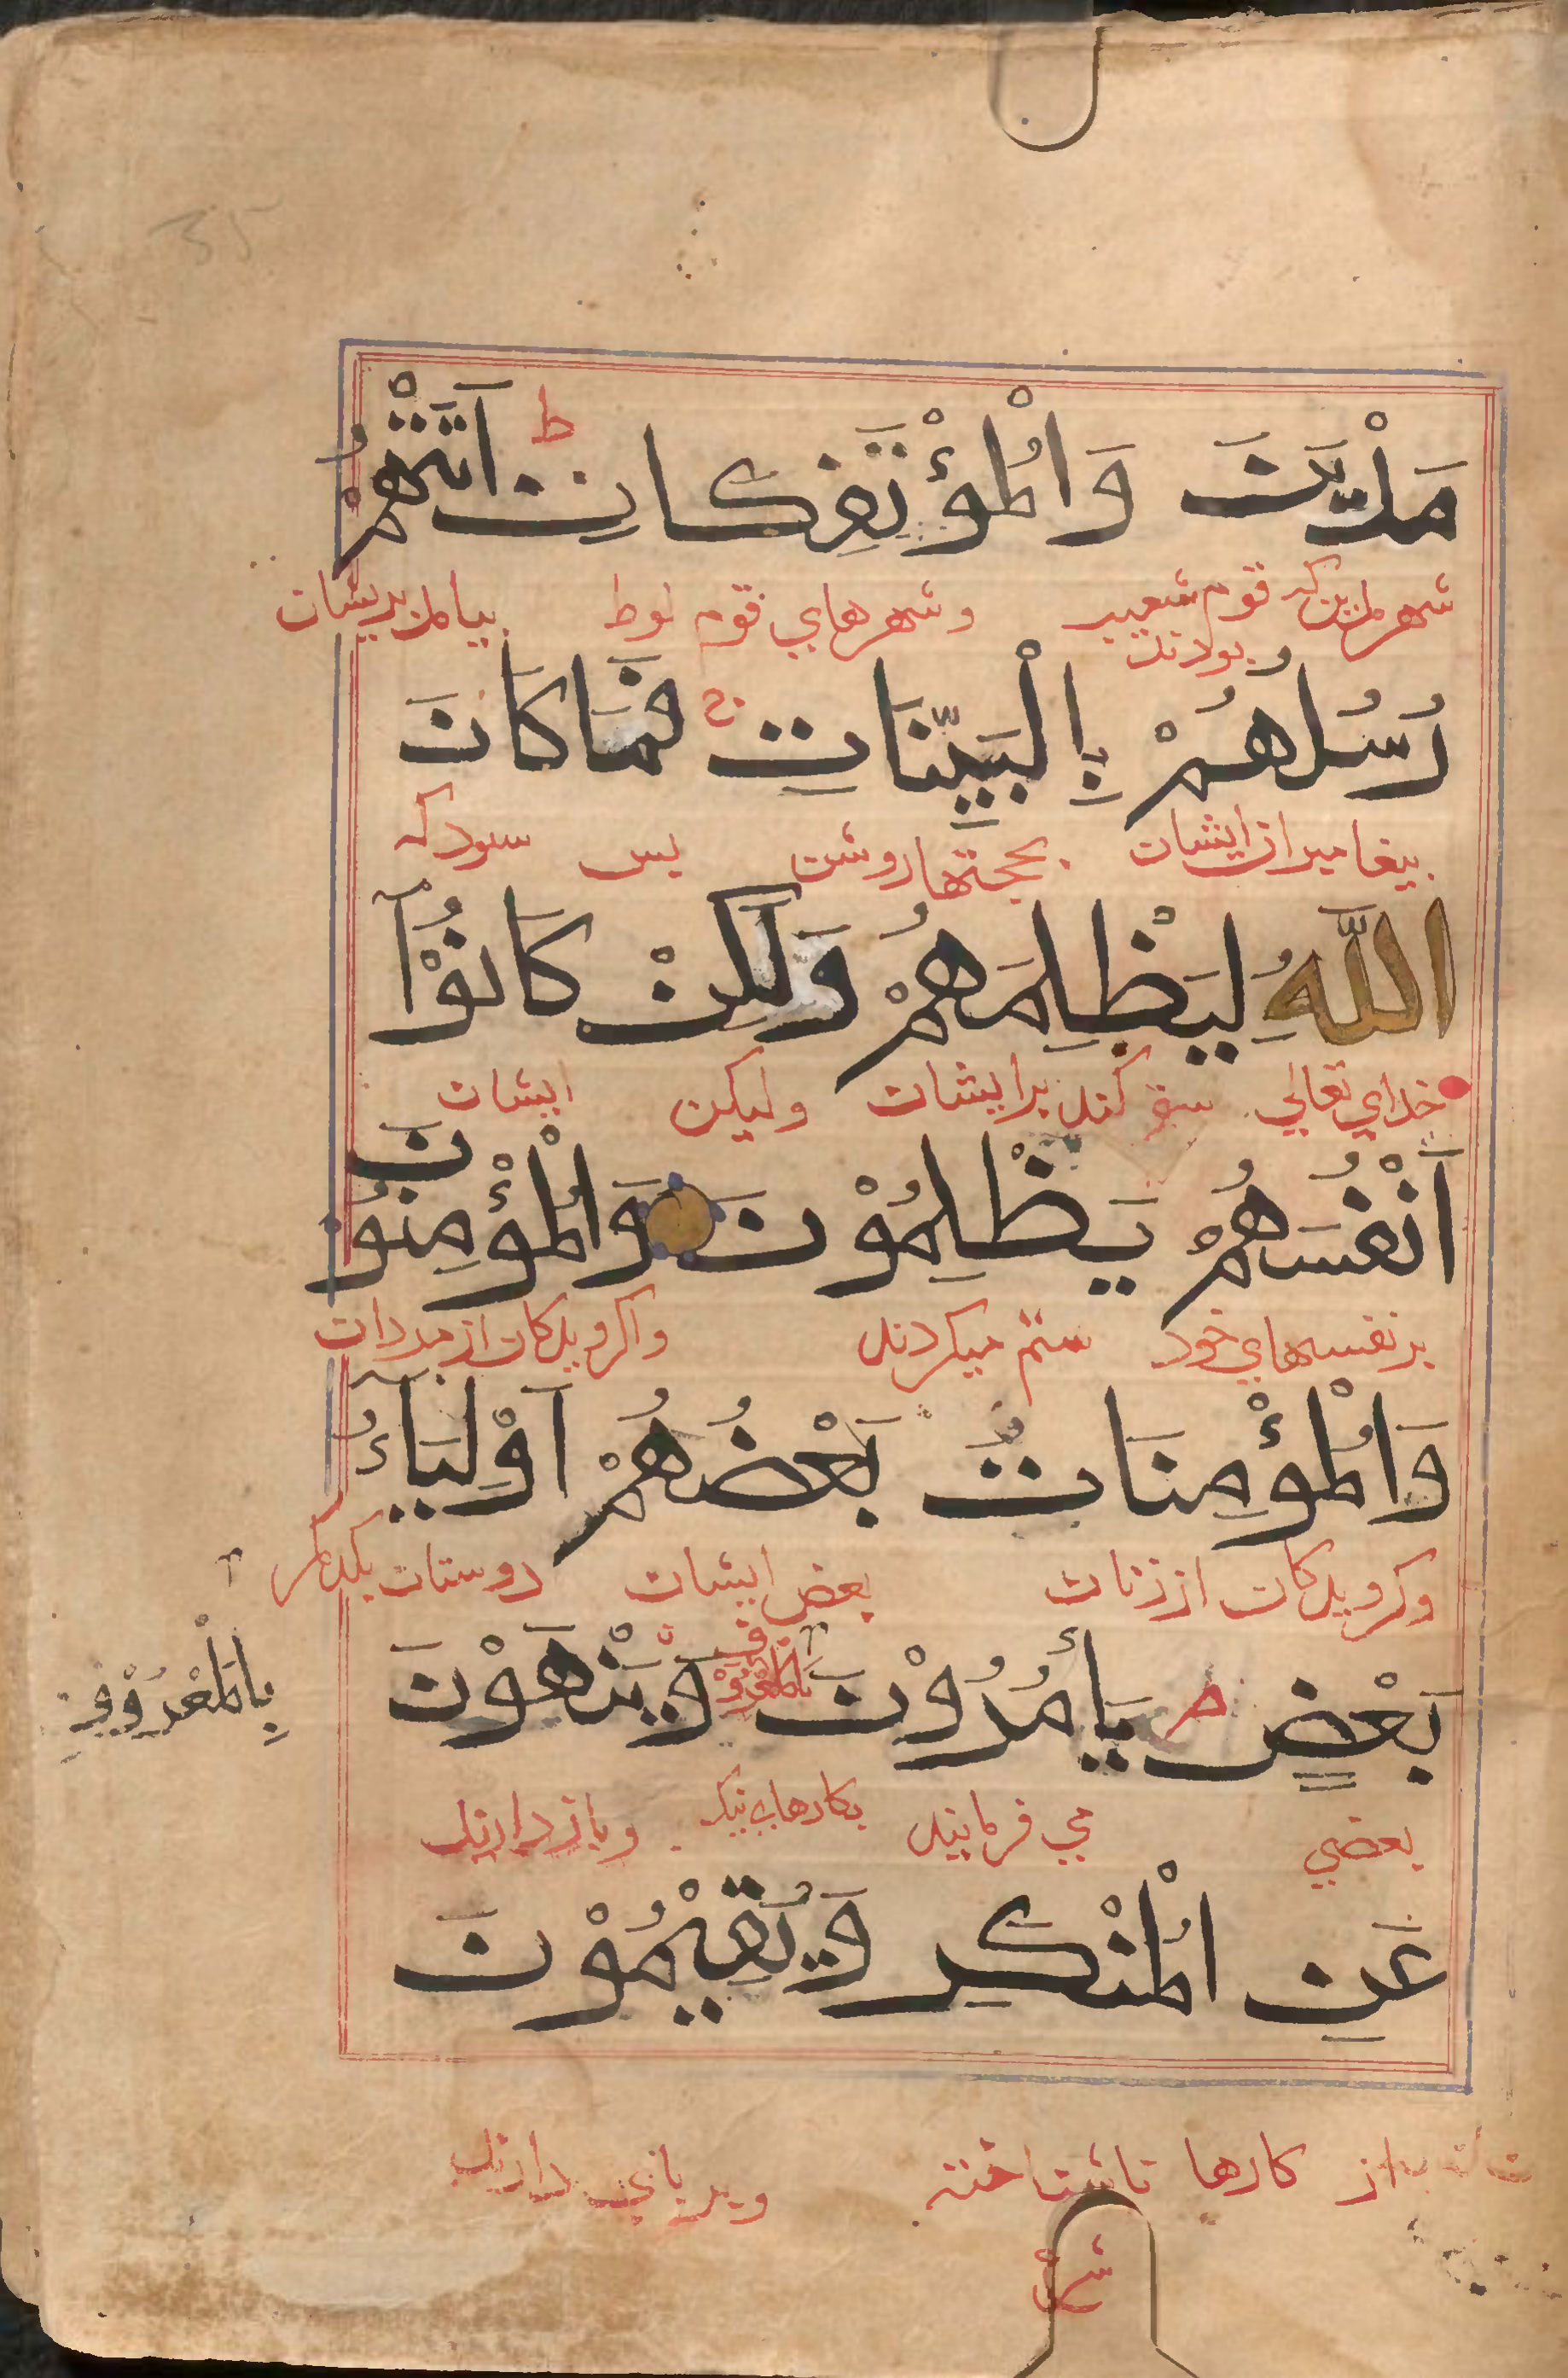 مَدْيَنَ وَالْمُؤْتَفِكَاتِ ط اَتَتْهُمْ
شهر مدین که قوم شعیب بودند وشهرهای قوم لوط بیامد بدیشان
رُسُلُهُمْ بِالْبَيِّنَاتِ ج فَمَا كَانَ
پیغامبران ایشان بحجتها روشن پس سود که
اللّٰهُ لِيَظْلِمَهُمْ وَلٰكِنْ كَانُوْٓا
خدای تعالی ستم کند برایشان ولیکن ایشان
اَنْفُسَهُمْ يَظْلِمُوْنَ وَالْمُؤْمِنُوْنَ
بر نفسهای خود ستم میکردند واکرویدکان از مردان
وَالْمُؤْمِنَاتُ بَعْضُهُمْ اَوْلِيَآءُ
وکرویدکان از زنان بعض ایشان دوستان یکدیکر
بَعْضٍ ص يَأْمُرُوْنَ بِالْمَعْرُوْفِ وَيَنْهَوْنَ
بِالْمَعْرُوْفِ
بعضی می فرمایند بکارهای نیک وباز دارند
عَنِ الْمُنْكَرِ وَيُقِيْمُوْنَ
از کارها ناشناخته وبر بای دارند